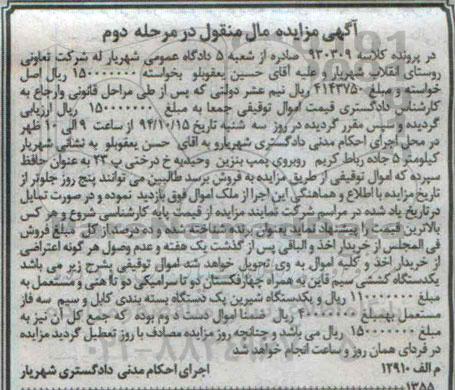 آگهی مزایده مال منقول در مرحله دوم
در پرونده کلاسه ۹۳۰۳۰۹ صادره از شعبه ۵ دادگاه عمومی شهریار له شرکت تعاونی
روستای انقلاب شهریار و علیه آقای حسین یعقوبلو بخواسته ۱۵۰۰۰۰۰۰۰ ریال اصل
خواسته و مبلغ ۴۱۴۳۷۵۰ ریال نیم عشر دولتی که پس از طی مراحل قانونی وارجاع به
کارشناس دادگستری قیمت اموال توقیفی جمعا به مبلغ ۱۵۰۰۰۰۰۰۰ ریال ارزیابی
گردیده و سپس مقرر گردیده در روز سه شنبه تاریخ ۹۴/۱۰/۱۵ از ساعت ۹ الی ۱۰ ظهر
در محل اجرای احکام مدنی دادگستری شهریارو به آقای حسن یعقوبلو به نشانی شهریار
کیلومتر ۵ جاده رباط کریم روبروی پمپ بنزین وحیدیه خ درختی پ ۴۳ به عنوان حافظ
سپرده که اموال توقیفی از طریق مزایده به فروش برسد طالبین می توانند پنج روز جلوتر از
تاریخ مزایده با اطلاع و هماهنگی این اجرا از ملک اموال فوق بازدید نموده و در صورت تمایل
درتاریخ یاد شده در مراسم شرکت نمایند مزایده از قیمت پایه کارشناسی شروع و هر کس
بالاترین قیمت را پیشنهاد نماید بعنوان برنده شناخته شده و ده درصد از کل مبلغ فروش
فی المجلس از خریدار اخذ و الباقی پس از گذشت یک هفته و عدم وصول هر گونه اعتراضی
از خریدار اخذ و کلاه اموال به وی تحویل خواهد شد اموال توقیفی بشرح زیر می باشد
یکدستگاه کششی سیم قاین به همراه چهارفکستان دو تا سرامیکی دو تا هنی و مستعمل به
مبلغ ۱۱۰۰۰۰۰۰۰ ریال و یکدستگاه شیرین پک دستگاه بسته بندی کابل و سیم سه فاز
مستعمل بهمبلغ ۴۰۰۰۰۰۰۰ ریال ضمنا اموال دست دوم بوده که جمع کل آن نیز به
مبلغ ۱۵۰۰۰۰۰۰۰ ریال می باشد و چنانچه روز مزایده مصادف با روز تعطیل گردید مزایده
در فردای همان روز و ساعت انجام خواهد شد
م الف ۱۲۹۱۰ اجرای احکام مدنی دادگستری شهریار